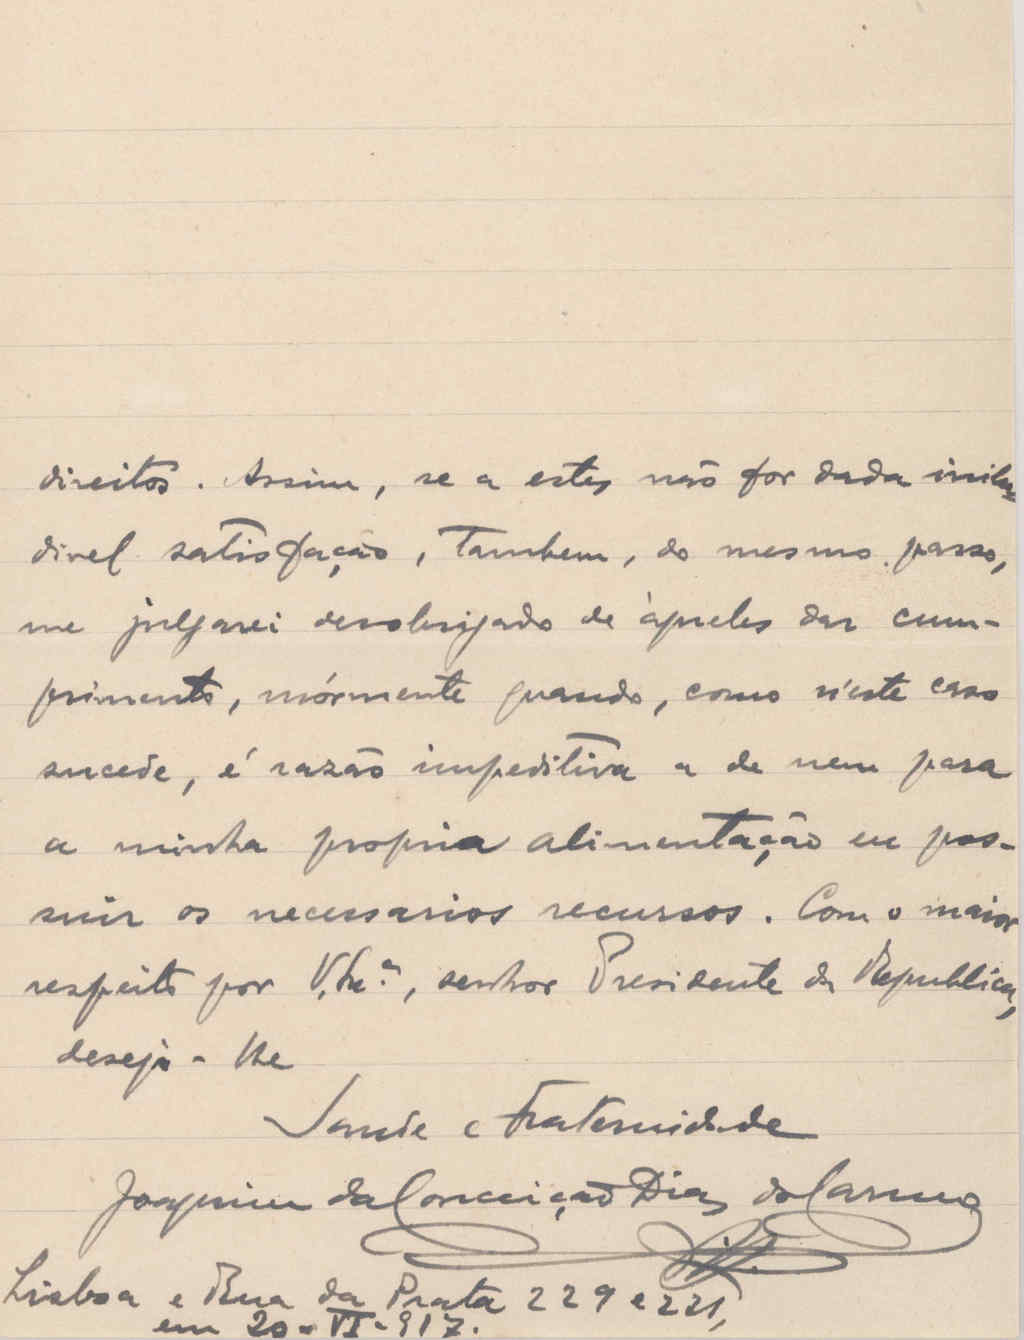 direitos. Assim, se a estes não for dada inilu-
divel satisfação, tambem, do mesmo passo,
me julgarei desobrigado de àqueles dar cum-
primento, mórmente quando, como n'este caso
sucede, é razão impeditiva a de nem para
a minha propria alimentação eu pos-
suir os necessarios recursos. Com o maior
respeito por V. Ex.ª, senhor Presidente da Republica,
deseja-lhe
Saude e Fraternidade
Joaquim da Conceição Dias do Carmo
Lisboa e Rua da Prata 229 e 221,
em 20-VI-917.